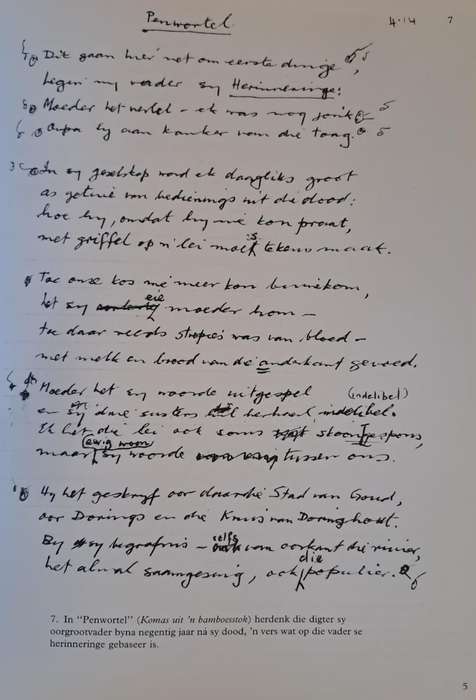 Penwortel
4.14
7
Dit gaan hier net om eerste dinge,
begin my vader sy Herinneringe:
Moeder het vertel – ek was nog jonk –
Oupa ly aan kanker van die tong.
In sy geselskap word ek daagliks groot
as getuie van bedienings uit die dood:
hoe hy, omdat hy nie kon praat,
met griffel op 'n lei moes tekens maak.
Toe onse kos nie meer kon binnekom,
het sy eie moeder hom –
toe daar reeds stropies was van bloed –
met melk en brood van die anderkant gevoed.
Moeder het sy woorde uitgespel (indelibel)
en sy susters herhaal, indelibel.
Ek het die lei ook soms skoongespons,
maar ewig woon sy woorde tussen ons.
Hy het gestryf oor daardie Stad van Goud,
oor Dorings en die Kruis van Doringhout.
By sy begrafnis – selfs van oorkant die rivier,
het almal saamgesing, ook die populier.
7. In "Penwortel" (Komas uit 'n bamboesstok) herdenk die digter sy
oorgrootvader byna negentig jaar ná sy dood, 'n vers wat op die vader se
herinneringe gebaseer is.
5